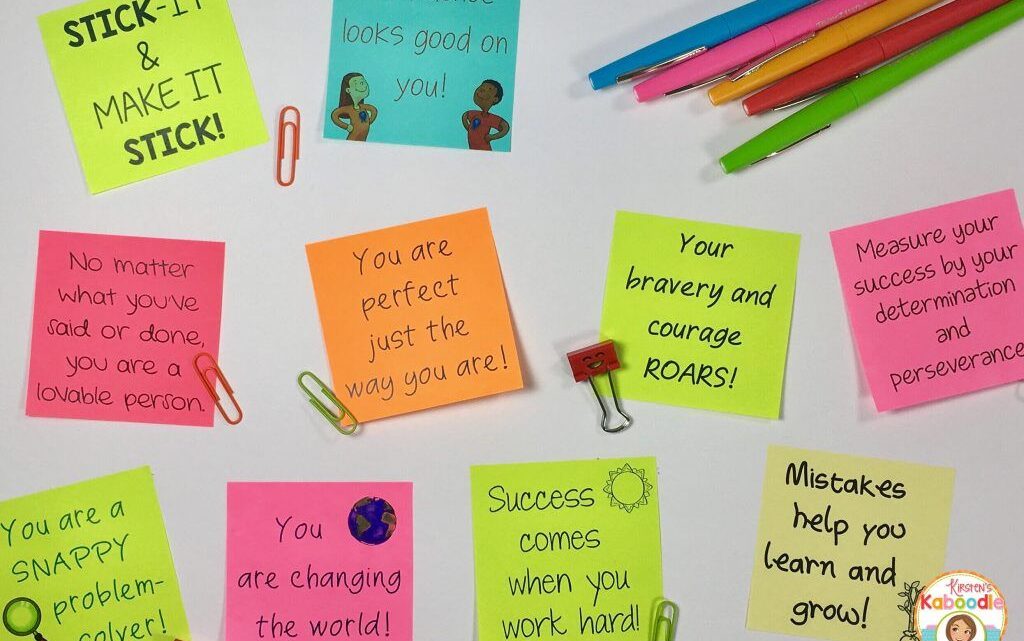 STICK-IT
&
MAKE IT
STICK!
looks good on
you!
No matter
what you've
said or done,
you are a
lovable person.
You are
perfect
just the
way you are!
Your
bravery and
courage
ROARS!
Measure your
success by your
determination
and
perseverance
You are a
SNAPPY
problem-
solver!
You
are changing
the world!
Success
comes
when you
work hard!
Mistakes
help you
learn and
grow!
KiRSTEN'S
Kaboodle